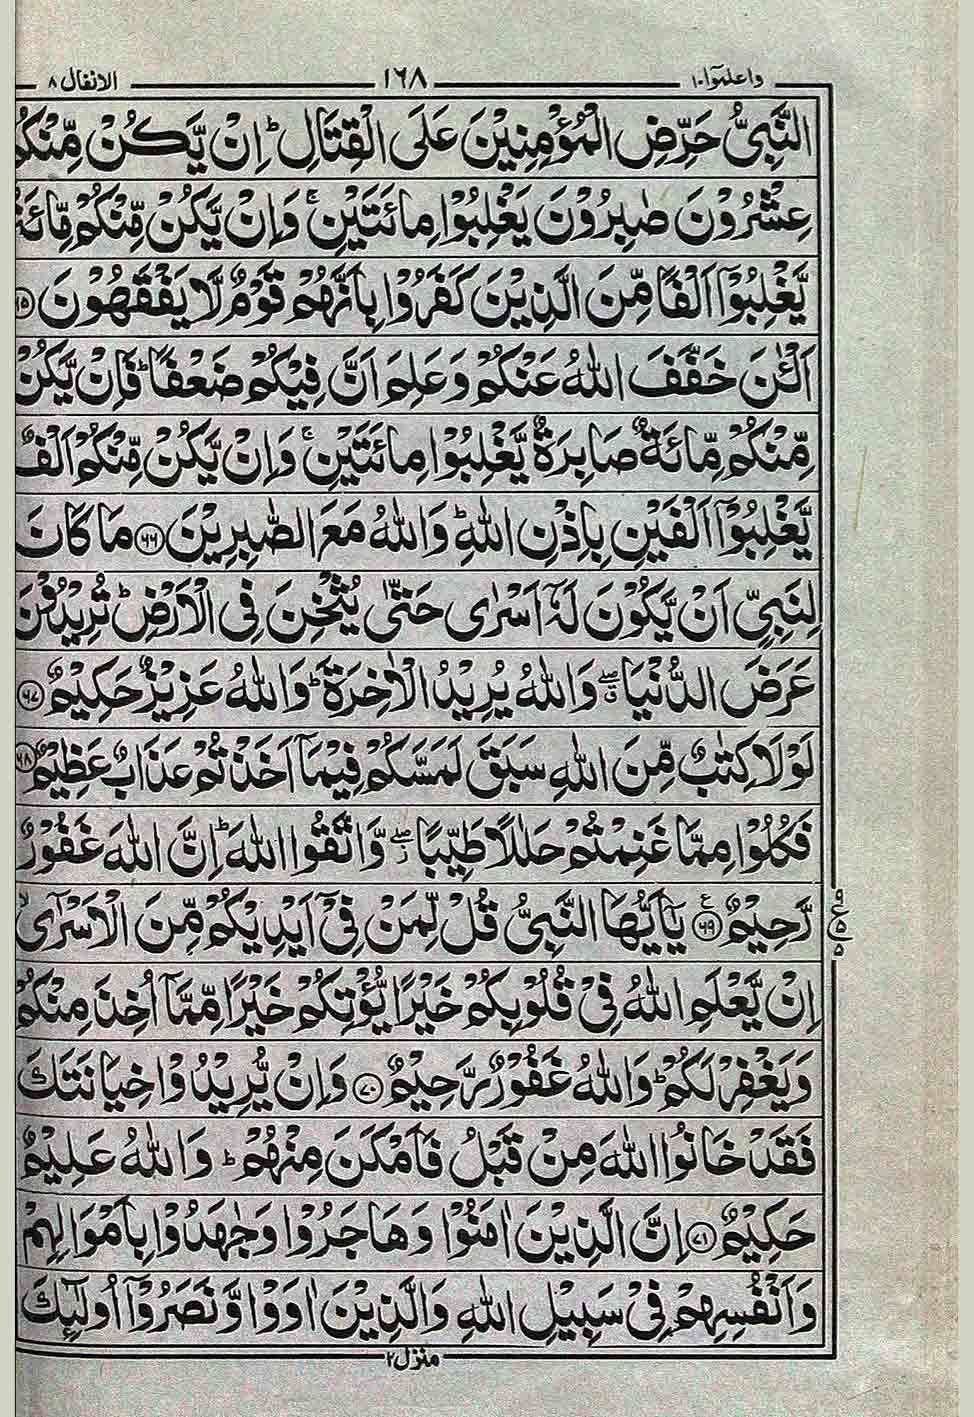 واعلموٓا ١٠ ١٦٨ الانفال ٨
النَّبِىُّ حَرِّضِ الْمُؤْمِنِيْنَ عَلَى الْقِتَالِ ؕ اِنْ يَّكُنْ مِّنْكُمْ
عِشْرُوْنَ صٰبِرُوْنَ يَغْلِبُوْا مِائَتَيْنِ ۚ وَاِنْ يَّكُنْ مِّنْكُمْ مِّائَةٌ
يَّغْلِبُوْٓا اَلْفًا مِّنَ الَّذِيْنَ كَفَرُوْا بِاَنَّهُمْ قَوْمٌ لَّا يَفْقَهُوْنَ ﴿٦٥﴾
اَلْـٰٔنَ خَفَّفَ اللّٰهُ عَنْكُمْ وَعَلِمَ اَنَّ فِيْكُمْ ضَعْفًا ؕ فَاِنْ يَّكُنْ
مِّنْكُمْ مِّائَةٌ صَابِرَةٌ يَّغْلِبُوْا مِائَتَيْنِ ۚ وَاِنْ يَّكُنْ مِّنْكُمْ اَلْفٌ
يَّغْلِبُوْٓا اَلْفَيْنِ بِاِذْنِ اللّٰهِ ؕ وَاللّٰهُ مَعَ الصّٰبِرِيْنَ ﴿٦٦﴾ مَا كَانَ
لِنَبِىٍّ اَنْ يَّكُوْنَ لَهٗٓ اَسْرٰى حَتّٰى يُثْخِنَ فِى الْاَرْضِ ؕ تُرِيْدُوْنَ
عَرَضَ الدُّنْيَا ۖ ق وَاللّٰهُ يُرِيْدُ الْاٰخِرَةَ ؕ وَاللّٰهُ عَزِيْزٌ حَكِيْمٌ ﴿٦٧﴾
لَوْلَا كِتٰبٌ مِّنَ اللّٰهِ سَبَقَ لَمَسَّكُمْ فِيْمَآ اَخَذْتُمْ عَذَابٌ عَظِيْمٌ ﴿٦٨﴾
فَكُلُوْا مِمَّا غَنِمْتُمْ حَلٰلًا طَيِّبًا ۖ ز وَّاتَّقُوا اللّٰهَ ؕ اِنَّ اللّٰهَ غَفُوْرٌ
رَّحِيْمٌ ﴿٦٩﴾ ع يٰٓاَيُّهَا النَّبِىُّ قُلْ لِّمَنْ فِىْٓ اَيْدِيْكُمْ مِّنَ الْاَسْرٰٓى ۙ
اِنْ يَّعْلَمِ اللّٰهُ فِىْ قُلُوْبِكُمْ خَيْرًا يُّؤْتِكُمْ خَيْرًا مِّمَّآ اُخِذَ مِنْكُمْ
وَيَغْفِرْ لَكُمْ ؕ وَاللّٰهُ غَفُوْرٌ رَّحِيْمٌ ﴿٧٠﴾ وَاِنْ يُّرِيْدُوْا خِيَانَتَكَ
فَقَدْ خَانُوا اللّٰهَ مِنْ قَبْلُ فَاَمْكَنَ مِنْهُمْ ؕ وَاللّٰهُ عَلِيْمٌ
حَكِيْمٌ ﴿٧١﴾ اِنَّ الَّذِيْنَ اٰمَنُوْا وَهَاجَرُوْا وَجٰهَدُوْا بِاَمْوَالِهِمْ
وَاَنْفُسِهِمْ فِىْ سَبِيْلِ اللّٰهِ وَالَّذِيْنَ اٰوَوْا وَّنَصَرُوْٓا اُولٰٓئِكَ
منزل ٢